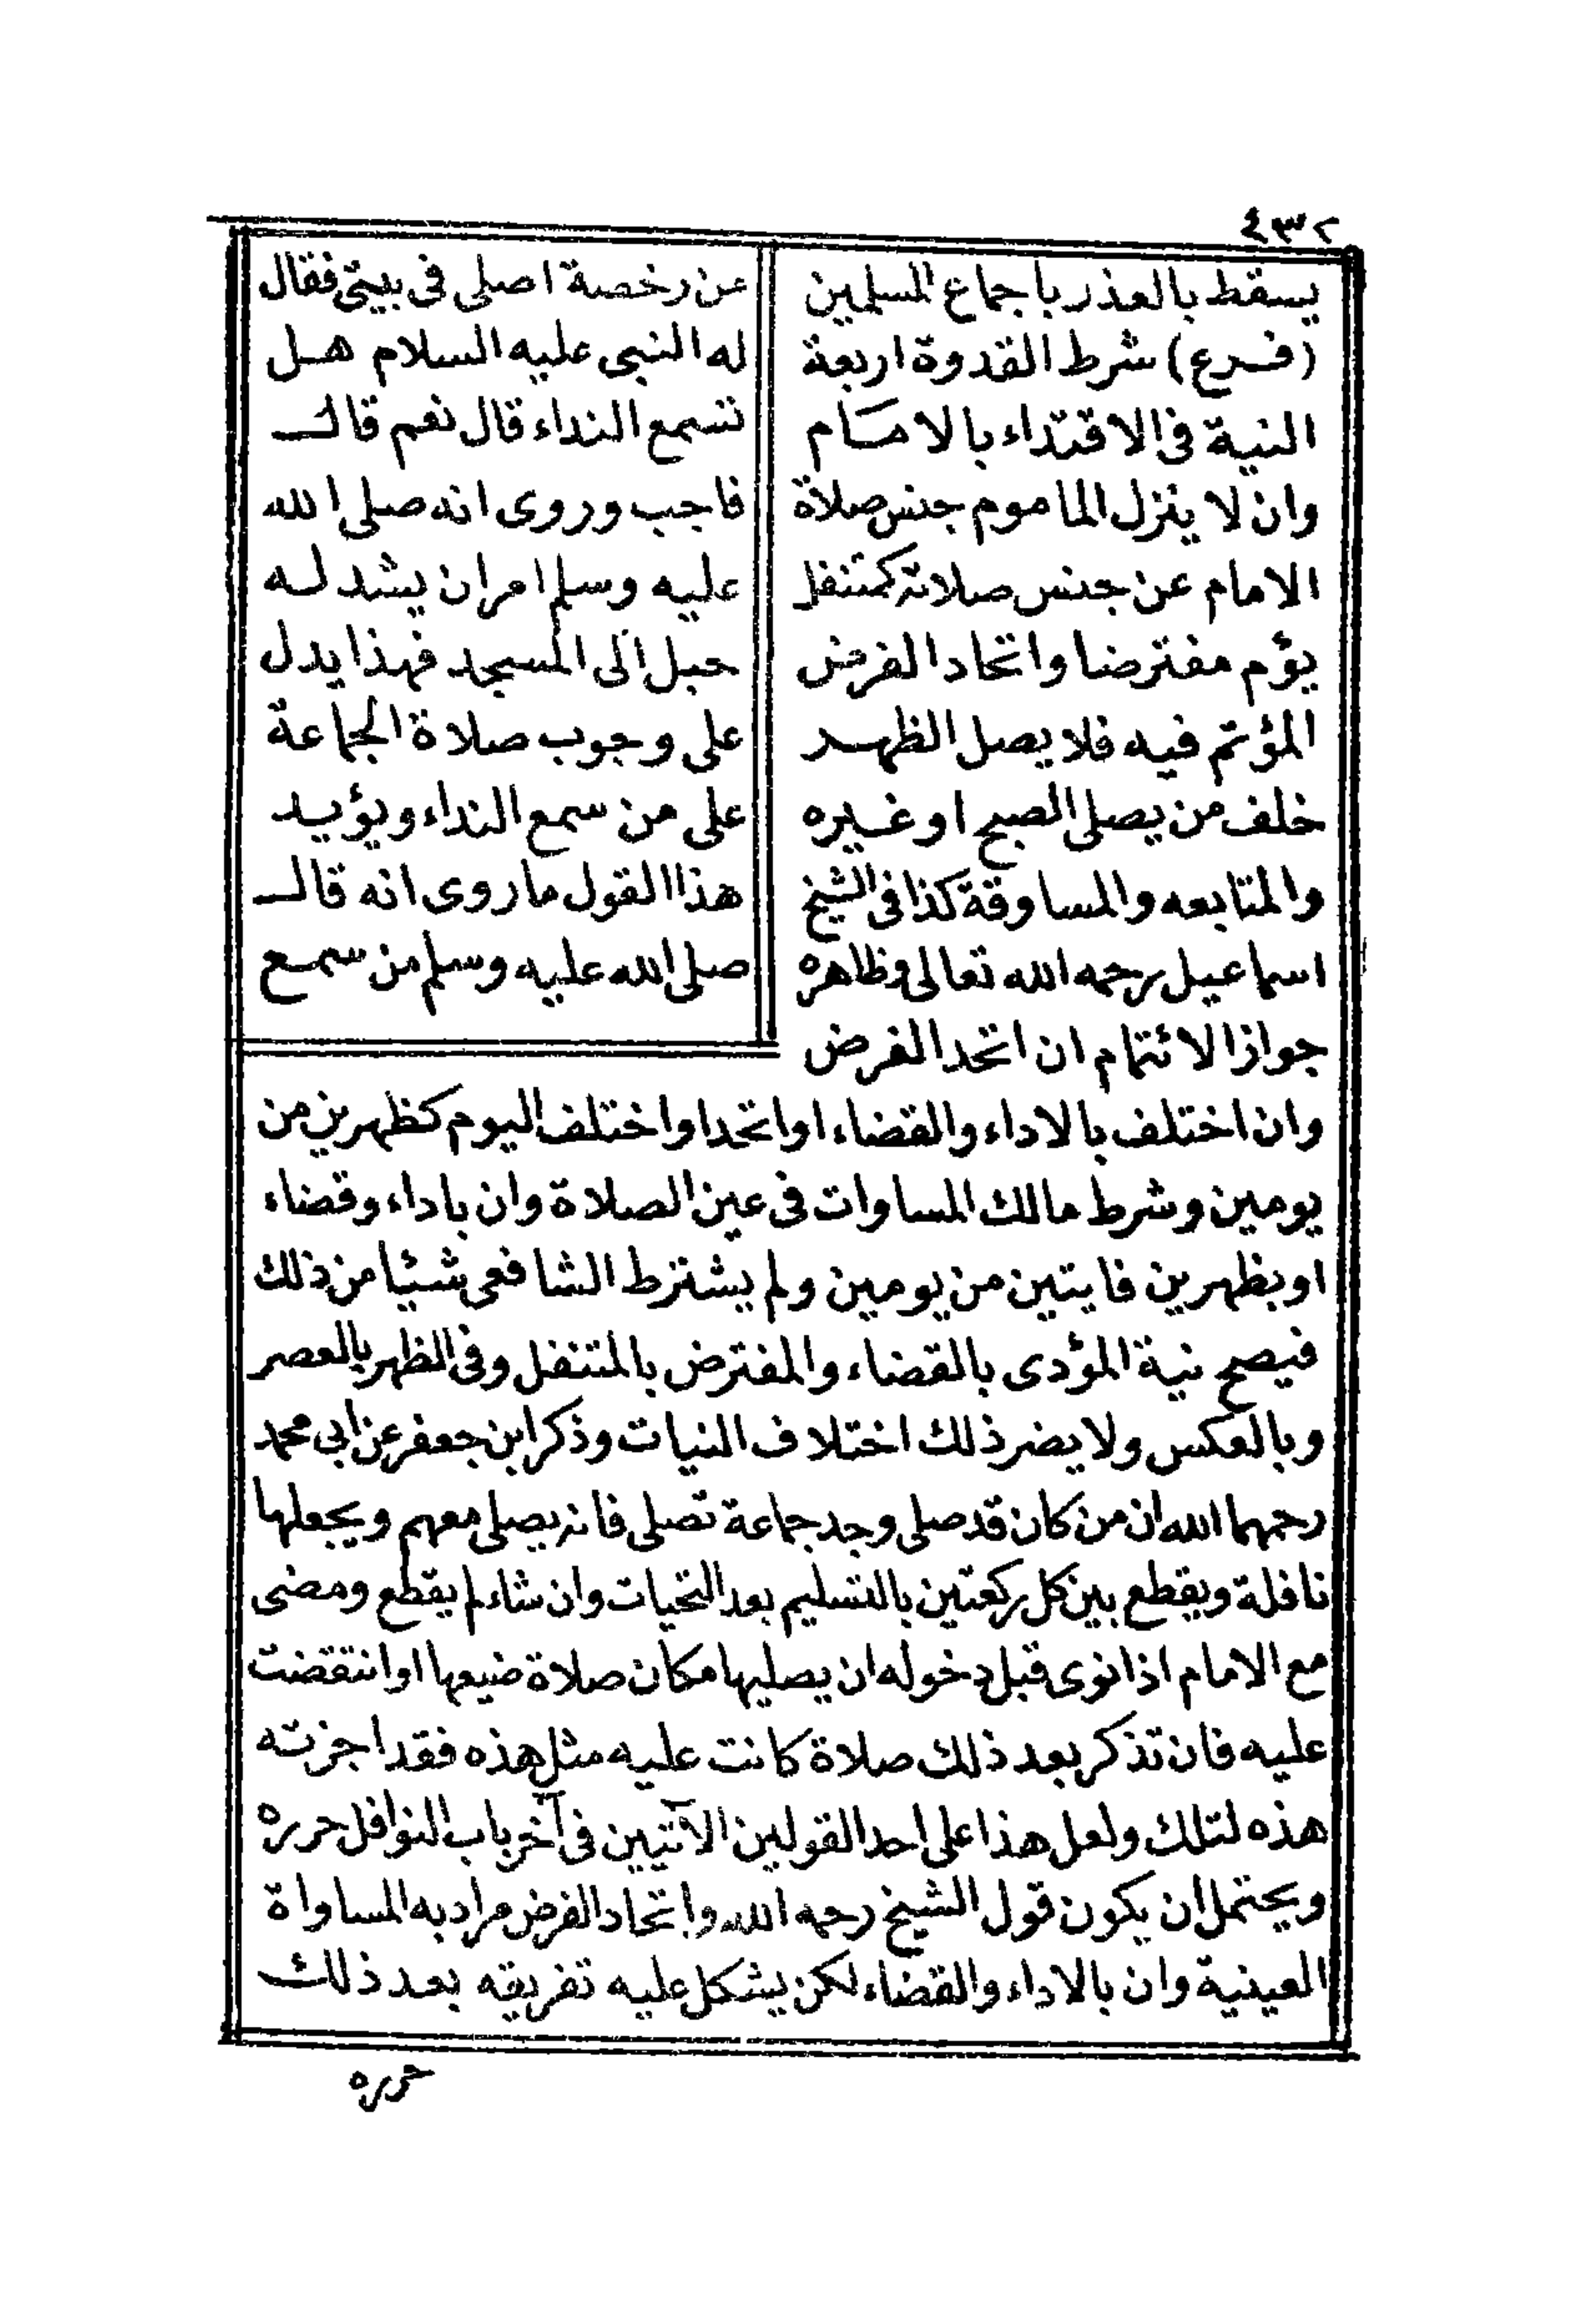 ٤٣٢
يسقط بالعذر باجماع المسلمين
(فرع) شرط القدوة اربعة
النية فى الاقتداء بالامام
وان لا ينزل الماموم جنس صلاة
الامام عن جنس صلاته كمتنفل
يؤم مفترضا واتحاد الفرض
المؤتم فيه فلا يصل الظهر
خلف من يصلى الصبح او غيره
والمتابعه والمساوقة كذا فى الشيخ
اسماعيل رحمه الله تعالى وظاهره
جواز الائتمام ان اتحد الفرض
عن رخصة اصلى فى بيتى فقال
له النبى عليه السلام هل
تسمع النداء قال نعم قال
فاجب وروى انه صلى الله
عليه وسلم امر ان يشد له
حبل الى المسجد فهذا يدل
على وجوب صلاة الجماعة
على من سمع النداء ويؤيد
هذا القول ما روى انه قال
صلى الله عليه وسلم من سمع
وان اختلف بالاداء والقضاء او اتحدا واختلف اليوم كظهرين من
يومين وشرط مالك المساوات فى عين الصلاة وان باداء وقضاء
او بظهرين فايتين من يومين ولم يشترط الشافعى شيئا من ذلك
فيصح نية المؤدى بالقضاء والمفترض بالمتنفل وفى الظهر بالعصر
وبالعكس ولا يضر ذلك اختلاف النيات وذكر ابن جعفر عن ابي محمد
رحمهما الله ان من كان قد صلى وجد جماعة تصلى فانه يصلى معهم ويجعلها
نافلة ويقطع بين كل ركعتين بالتسليم بعد التحيات وان شاء لم يقطع ومضى
مع الامام اذا نوى قبل دخوله ان يصليها مكان صلاة ضيعها او انتقضت
عليه فان تذكر بعد ذلك صلاة كانت عليه مثل هذه فقد اجزته
هذه لتلك ولعل هذا على احد القولين الآتيين فى آخر باب النوافل حرره
ويحتمل ان يكون قول الشيخ رحمه الله واتحاد الفرض مراد به المساواة
العينية وان بالاداء والقضاء لكن يشكل عليه تفريقه بعد ذلك
حرره